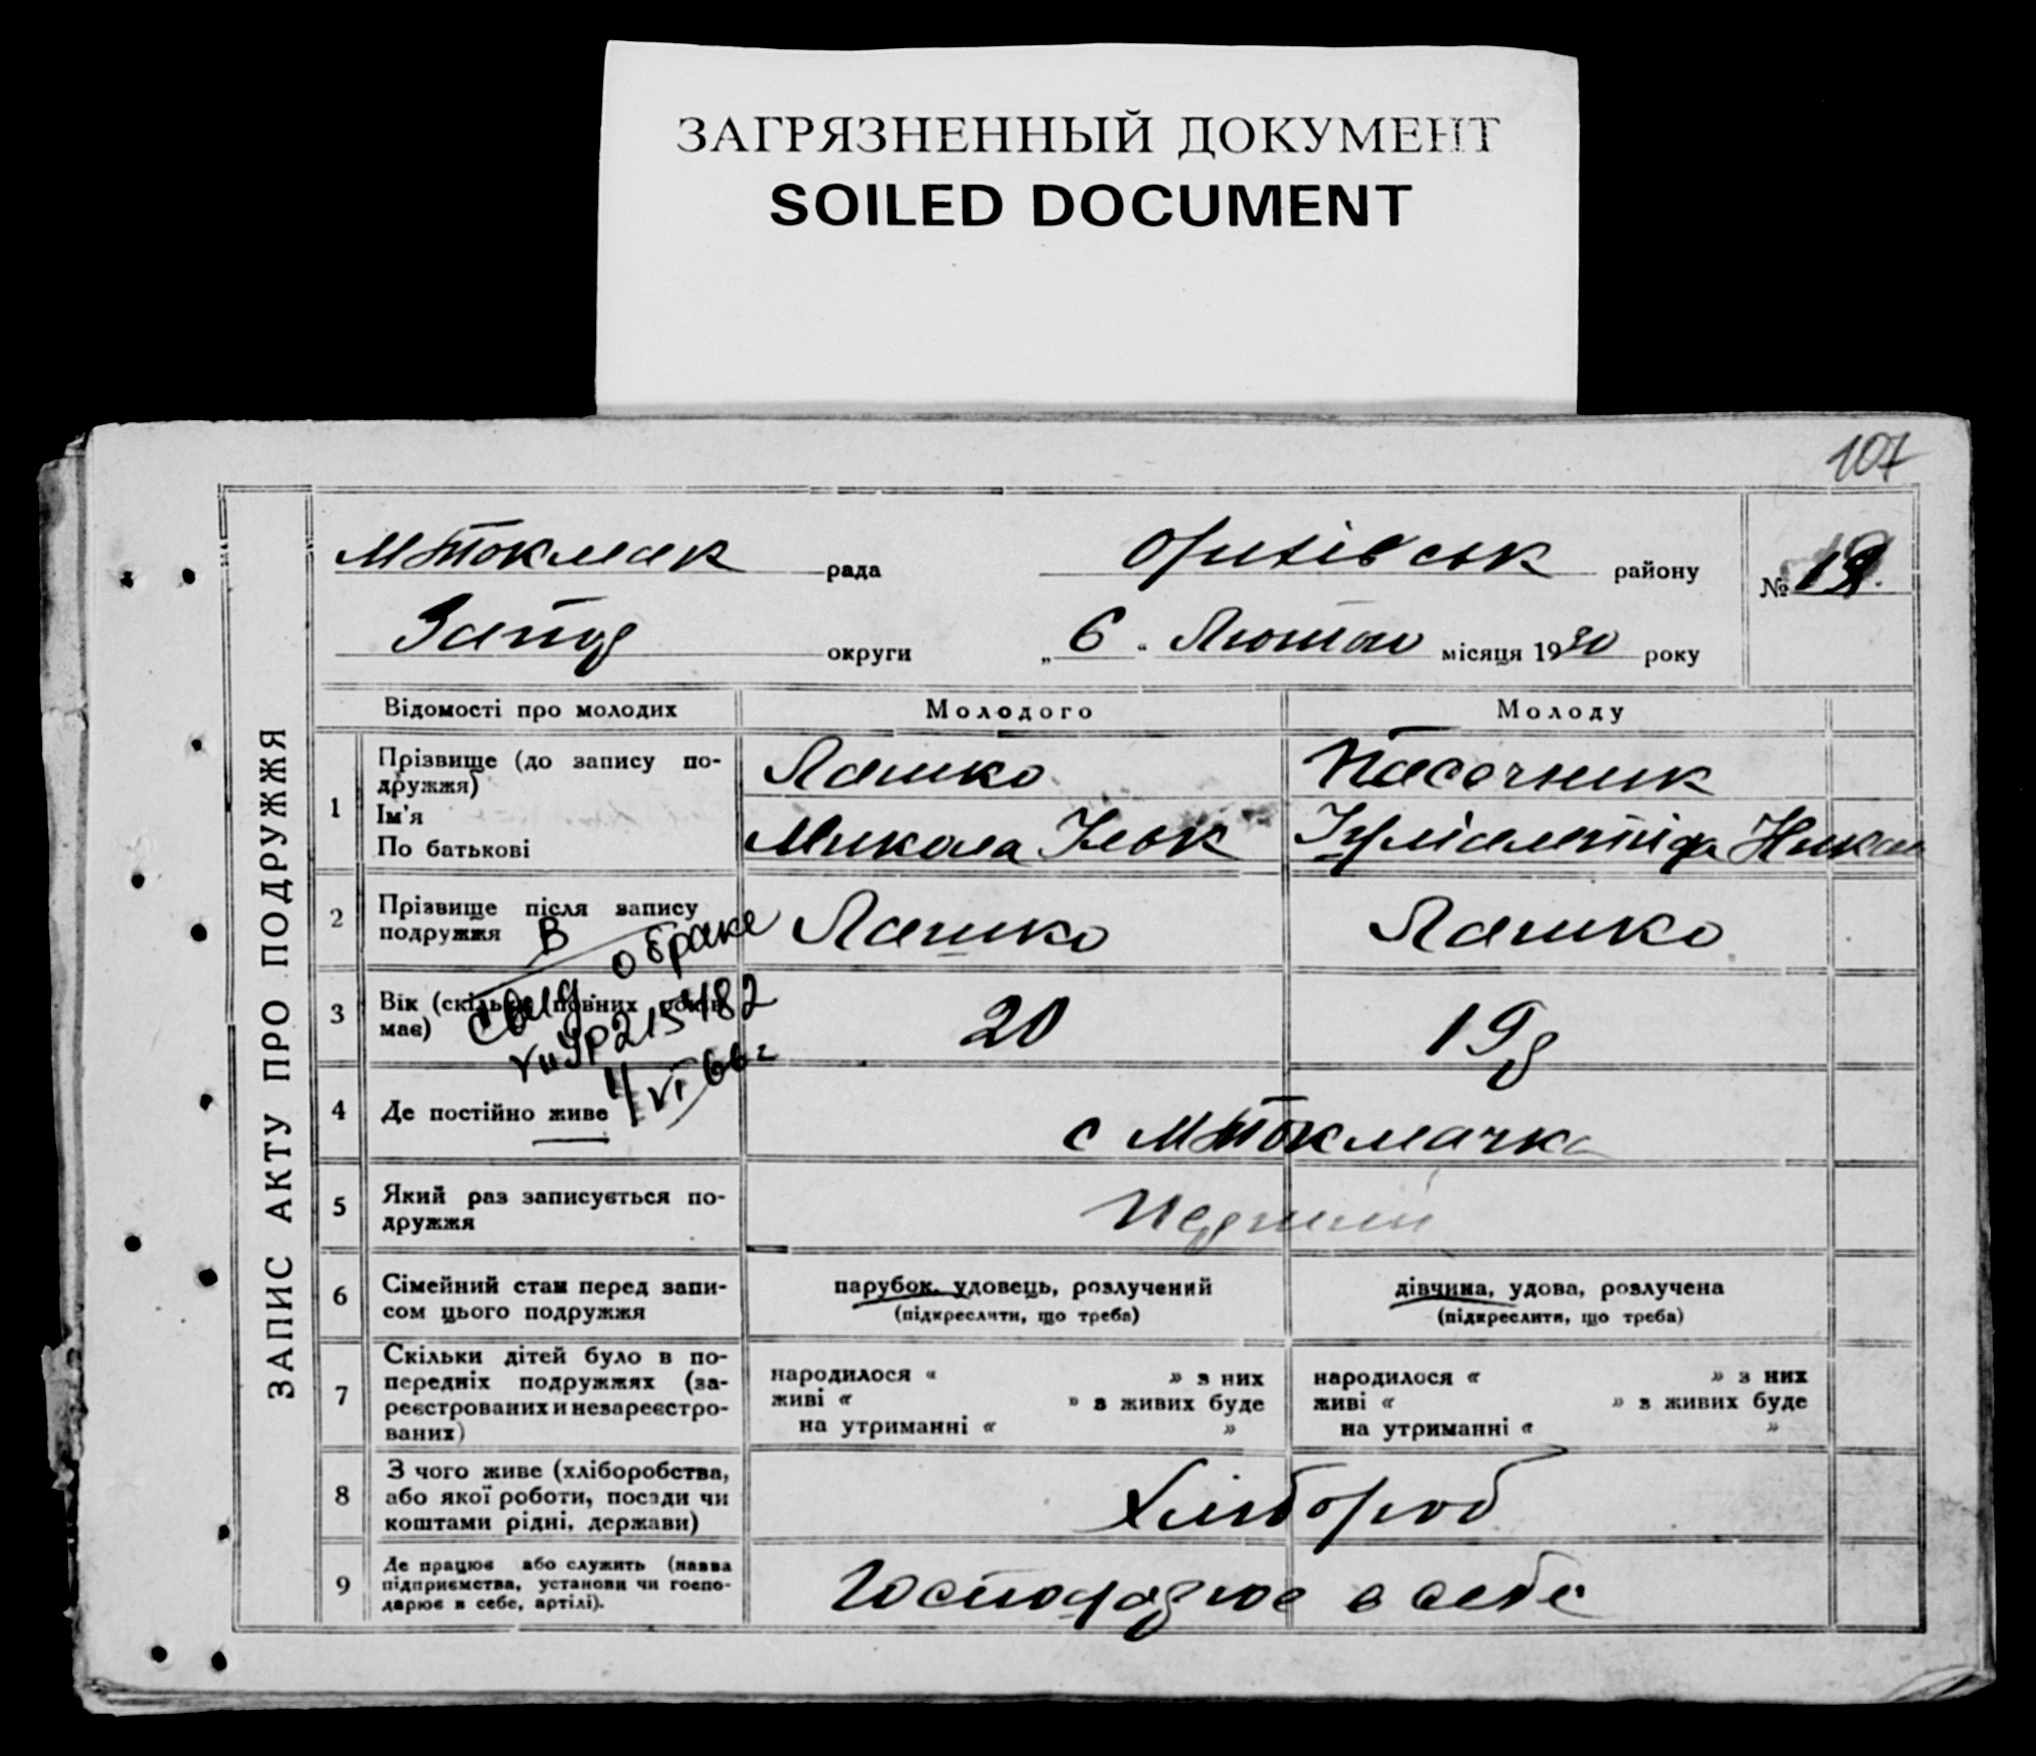 ЗАГРЯЗНЕННЫЙ ДОКУМЕНТ
SOILED DOCUMENT
107
ЗАПИС АКТУ ПРО ПОДРУЖЖЯ
МТокмак рада Оріхівськ району
№
Запор округи „6“ Лютого місяця 1930 року
Відомості про молодих Молодого Молоду
1 Прізвище (до запису по-
дружжя) Лашко Пасечник
Ім'я
По батькові Микола Никан
2 Прізвище після запису
подружжя Лашко Лашко
3 Вік (скільки повних років
має) 20 19
В
свид. о браке
УР 215482
4/VI 66г
4 Де постійно живе с МТокмачка
5 Який раз записується по-
дружжя Перший
6 Сімейний стан перед запи-
сом цього подружжя
парубок, удовець, розлучений
(підкреслити, що треба)
дівчина, удова, розлучена
(підкреслити, що треба)
7 Скільки дітей було в по-
передніх подружжях (за-
реєстрованих и незареєстро-
ваних)
народилося « » з них
живі « » з живих буде
на утриманні « »
народилося « » з них
живі « » з живих буде
на утриманні « »
8 З чого живе (хліборобства,
або якої роботи, посади чи
коштами рідні, держави) Хлібороб
9 Де працює або служить (назва
підприємства, установи чи госпо-
дарює в себе, артілі). Господарює в себе